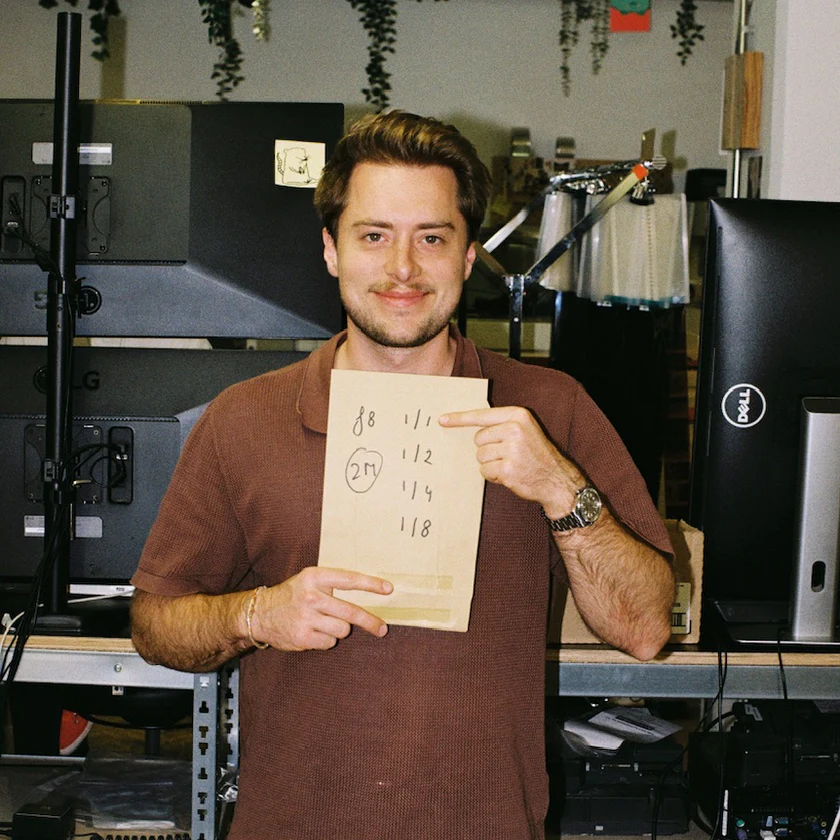 f8 1/1
1/2
2M
1/4
1/8
LG
DELL